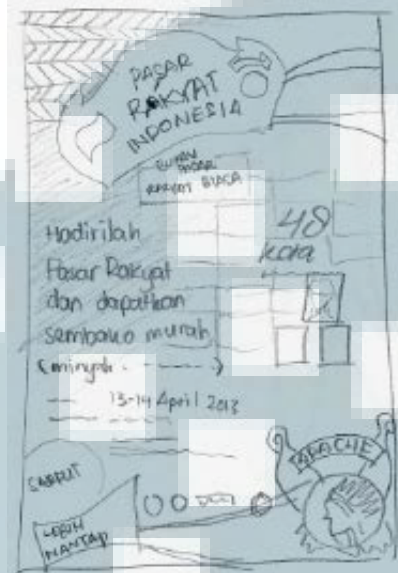 PASAR
RAKYAT
INDONESIA
BUKAN
PASAR
RAKYAT BIASA
Hadirilah
Pasar Rakyat
dan dapatkan
sembako murah
(minyak
48
kota
13-14 April 2013
APACHE
LEBIH
MANTAP